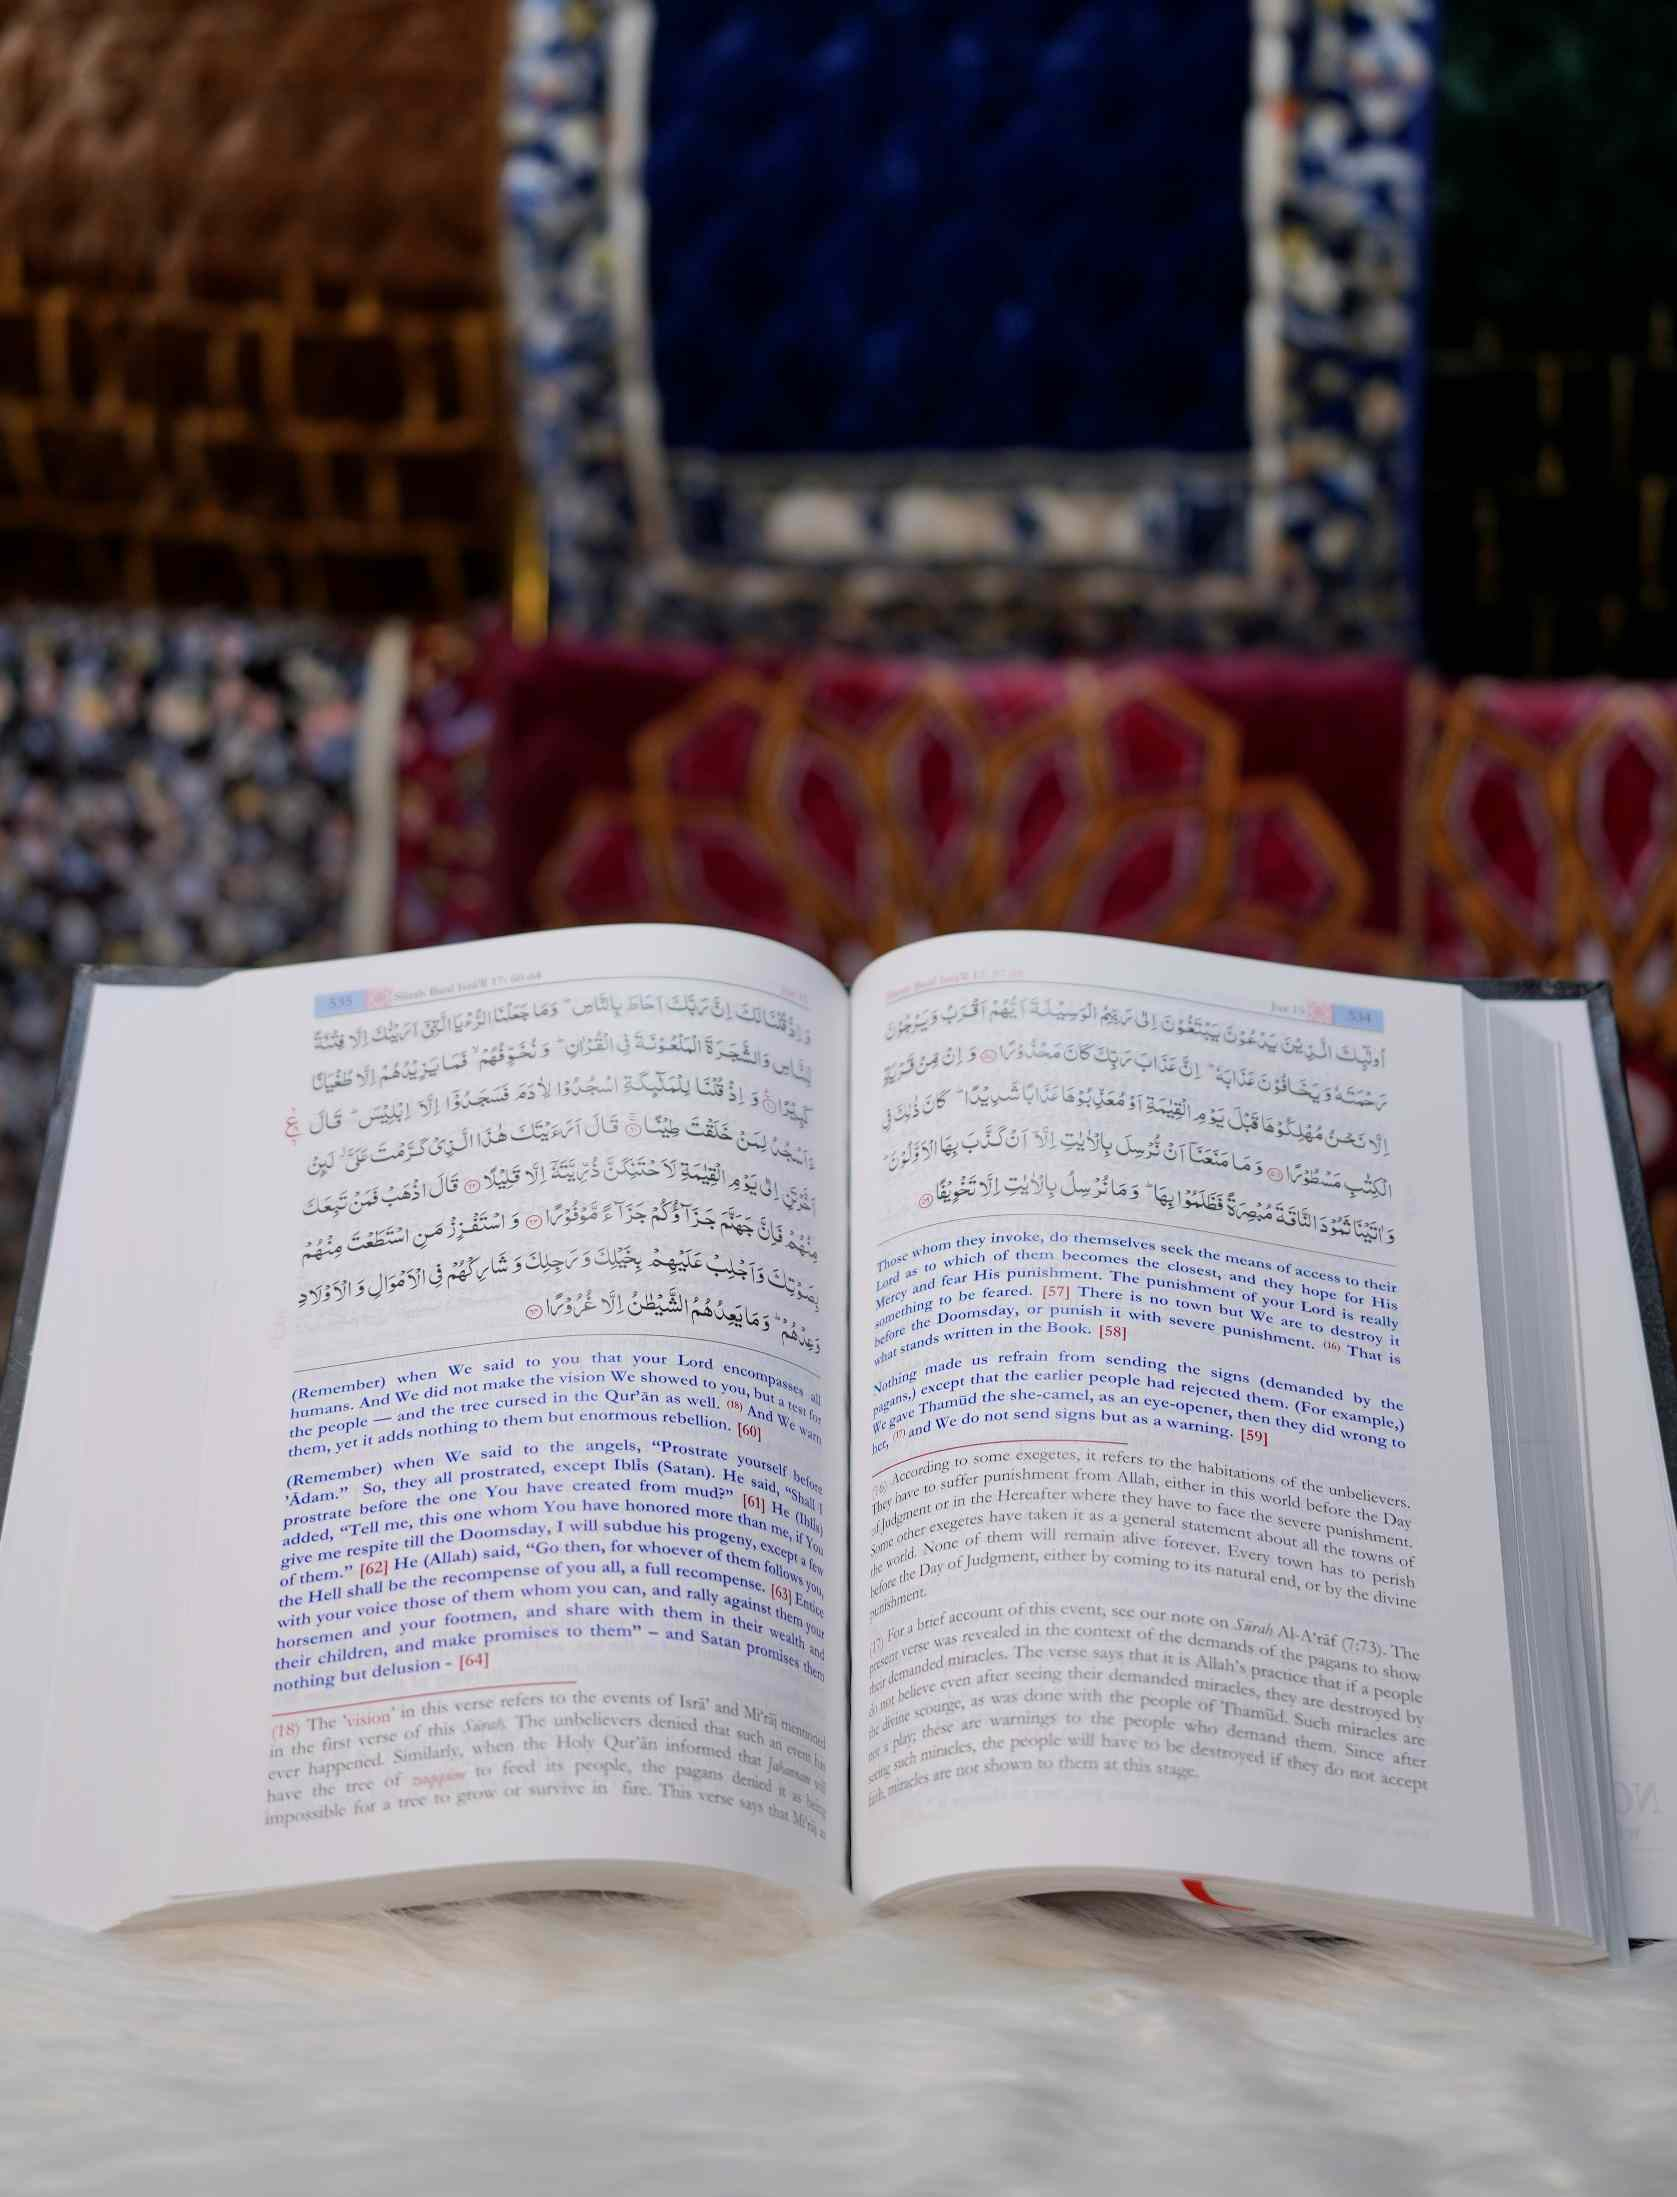 Sūrah Banī Isrā'īl 17: 57-59 Juz 15 534
اُولٰٓئِكَ الَّذِيْنَ يَدْعُوْنَ يَبْتَغُوْنَ اِلٰى رَبِّهِمُ الْوَسِيْلَةَ اَيُّهُمْ اَقْرَبُ وَيَرْجُوْنَ
رَحْمَتَهٗ وَيَخَافُوْنَ عَذَابَهٗ ؕ اِنَّ عَذَابَ رَبِّكَ كَانَ مَحْذُوْرًا ﴿۵۷﴾ وَ اِنْ مِّنْ قَرْيَةٍ
اِلَّا نَحْنُ مُهْلِكُوْهَا قَبْلَ يَوْمِ الْقِيٰمَةِ اَوْ مُعَذِّبُوْهَا عَذَابًا شَدِيْدًا ؕ كَانَ ذٰلِكَ فِي
الْكِتٰبِ مَسْطُوْرًا ﴿۵۸﴾ وَ مَا مَنَعَنَاۤ اَنْ نُّرْسِلَ بِالْاٰيٰتِ اِلَّاۤ اَنْ كَذَّبَ بِهَا الْاَوَّلُوْنَ ؕ
وَ اٰتَيْنَا ثَمُوْدَ النَّاقَةَ مُبْصِرَةً فَظَلَمُوْا بِهَا ؕ وَ مَا نُرْسِلُ بِالْاٰيٰتِ اِلَّا تَخْوِيْفًا ﴿۵۹﴾
Those whom they invoke, do themselves seek the means of access to their
Lord as to which of them becomes the closest, and they hope for His
Mercy and fear His punishment. The punishment of your Lord is really
something to be feared. [57] There is no town but We are to destroy it
before the Doomsday, or punish it with severe punishment. (16) That is
what stands written in the Book. [58]
Nothing made us refrain from sending the signs (demanded by the
pagans,) except that the earlier people had rejected them. (For example,)
We gave Thamūd the she-camel, as an eye-opener, then they did wrong to
her, (17) and We do not send signs but as a warning. [59]
(16) According to some exegetes, it refers to the habitations of the unbelievers.
They have to suffer punishment from Allah, either in this world before the Day
of Judgment or in the Hereafter where they have to face the severe punishment.
Some other exegetes have taken it as a general statement about all the towns of
the world. None of them will remain alive forever. Every town has to perish
before the Day of Judgment, either by coming to its natural end, or by the divine
punishment.
(17) For a brief account of this event, see our note on Sūrah Al-A'rāf (7:73). The
present verse was revealed in the context of the demands of the pagans to show
their demanded miracles. The verse says that it is Allah's practice that if a people
do not believe even after seeing their demanded miracles, they are destroyed by
the divine scourge, as was done with the people of Thamūd. Such miracles are
not a play; these are warnings to the people who demand them. Since after
seeing such miracles, the people will have to be destroyed if they do not accept
faith, miracles are not shown to them at this stage.
535 Sūrah Banī Isrā'īl 17: 60-64 Juz 15
وَ اِذْ قُلْنَا لَكَ اِنَّ رَبَّكَ اَحَاطَ بِالنَّاسِ ؕ وَ مَا جَعَلْنَا الرُّءْيَا الَّتِيْۤ اَرَيْنٰكَ اِلَّا فِتْنَةً
لِّلنَّاسِ وَالشَّجَرَةَ الْمَلْعُوْنَةَ فِي الْقُرْاٰنِ ؕ وَ نُخَوِّفُهُمْ ۙ فَمَا يَزِيْدُهُمْ اِلَّا طُغْيَانًا
كَبِيْرًا ﴿۶۰﴾ وَ اِذْ قُلْنَا لِلْمَلٰٓئِكَةِ اسْجُدُوْا لِاٰدَمَ فَسَجَدُوْۤا اِلَّاۤ اِبْلِيْسَ ؕ قَالَ
ءَاَسْجُدُ لِمَنْ خَلَقْتَ طِيْنًا ﴿۶۱﴾ قَالَ اَرَءَيْتَكَ هٰذَا الَّذِيْ كَرَّمْتَ عَلَيَّ ۫ لَئِنْ
اَخَّرْتَنِ اِلٰى يَوْمِ الْقِيٰمَةِ لَاَحْتَنِكَنَّ ذُرِّيَّتَهٗۤ اِلَّا قَلِيْلًا ﴿۶۲﴾ قَالَ اذْهَبْ فَمَنْ تَبِعَكَ
مِنْهُمْ فَاِنَّ جَهَنَّمَ جَزَآؤُكُمْ جَزَآءً مَّوْفُوْرًا ﴿۶۳﴾ وَ اسْتَفْزِزْ مَنِ اسْتَطَعْتَ مِنْهُمْ
بِصَوْتِكَ وَ اَجْلِبْ عَلَيْهِمْ بِخَيْلِكَ وَ رَجِلِكَ وَ شَارِكْهُمْ فِي الْاَمْوَالِ وَ الْاَوْلَادِ
وَعِدْهُمْ ؕ وَ مَا يَعِدُهُمُ الشَّيْطٰنُ اِلَّا غُرُوْرًا ﴿۶۴﴾
(Remember) when We said to you that your Lord encompasses all
humans. And We did not make the vision We showed to you, but a test for
the people — and the tree cursed in the Qur'ān as well. (18) And We warn
them, yet it adds nothing to them but enormous rebellion. [60]
(Remember) when We said to the angels, “Prostrate yourself before
'Ādam.” So, they all prostrated, except Iblīs (Satan). He said, “Shall I
prostrate before the one You have created from mud?” [61] He (Iblīs)
added, “Tell me, this one whom You have honored more than me, if You
give me respite till the Doomsday, I will subdue his progeny, except a few
of them.” [62] He (Allah) said, “Go then, for whoever of them follows you,
the Hell shall be the recompense of you all, a full recompense. [63] Entice
with your voice those of them whom you can, and rally against them your
horsemen and your footmen, and share with them in their wealth and
their children, and make promises to them” – and Satan promises them
nothing but delusion - [64]
(18) The 'vision' in this verse refers to the events of Isrā' and Mi'rāj mentioned
in the first verse of this Sūrah. The unbelievers denied that such an event has
ever happened. Similarly, when the Holy Qur'ān informed that Jahannam will
have the tree of zaqqūm to feed its people, the pagans denied it as being
impossible for a tree to grow or survive in fire. This verse says that Mi'rāj as